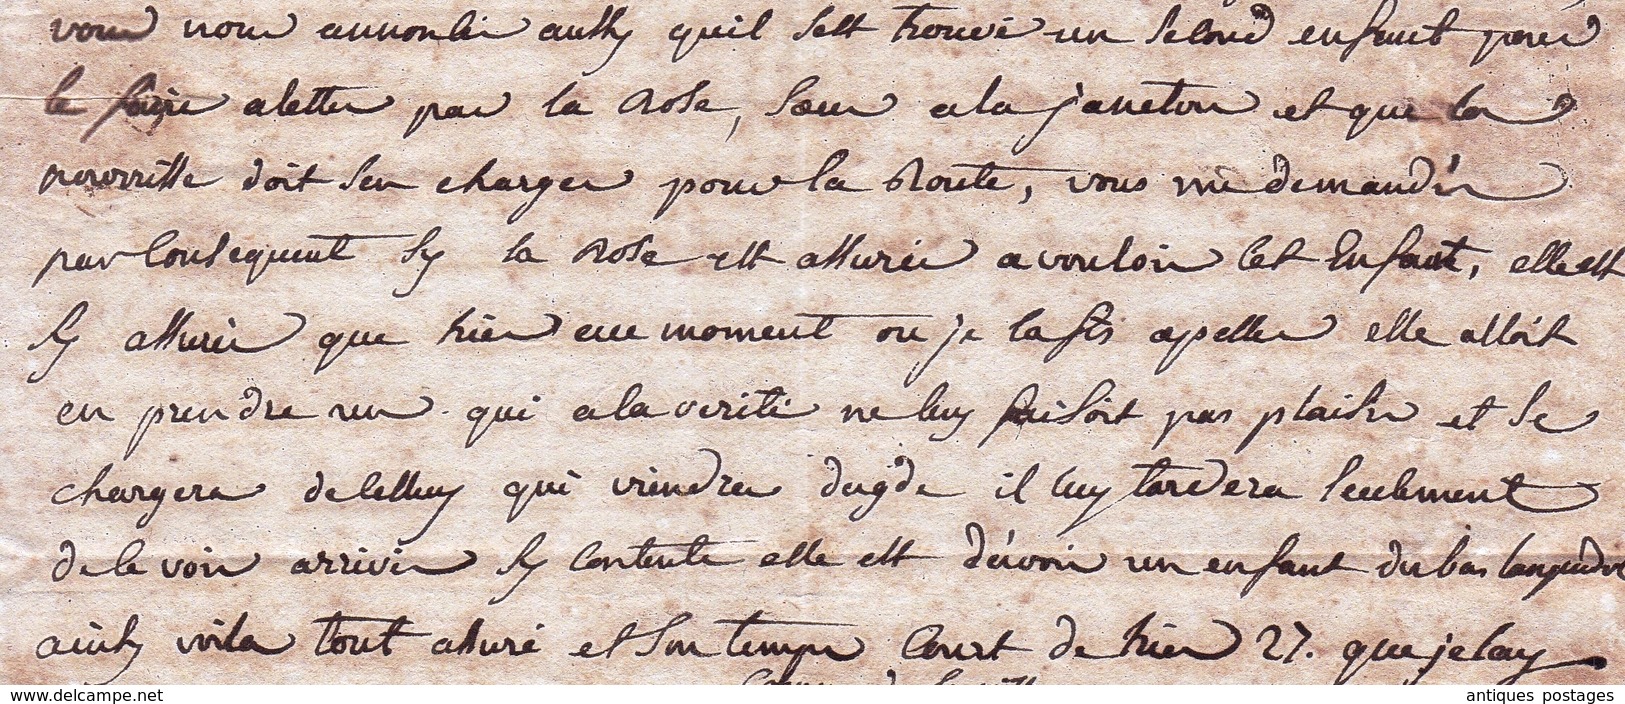 vous nous annonsés aussy quil sest trouvé un second enfant pour
le faire aletter par la Rose, sœur a la janeton et que la
nourrisse doit sen charger pour la Route, vous me demandés
par Consequent sy la Rose est assurée avouloir cet Enfant, elle est
sy assurée que hier au moment ou je la fis apeller elle alloit
en prendre un qui a la verité ne luy faisoit pas plaisir et se
chargera de celluy qui viendra dagde il luy tardera seulement
de le voir arriver sy Contente elle est d'avoir un enfant du bas languedoc
ainsy voila tout assuré et son temps Court de hier 27. que je lay
www.delcampe.net
antiques postages